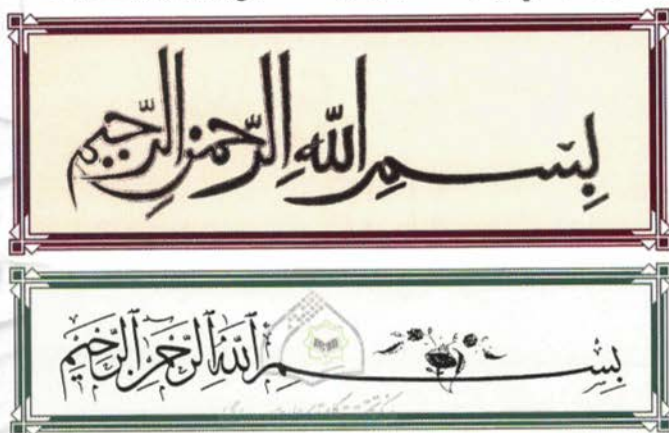 بِسْمِ اللّهِ الرَّحمنِ الرَّحيمِ
بِسْمِ اللَّهِ الرَّحْمَنِ الرَّحِيمِ